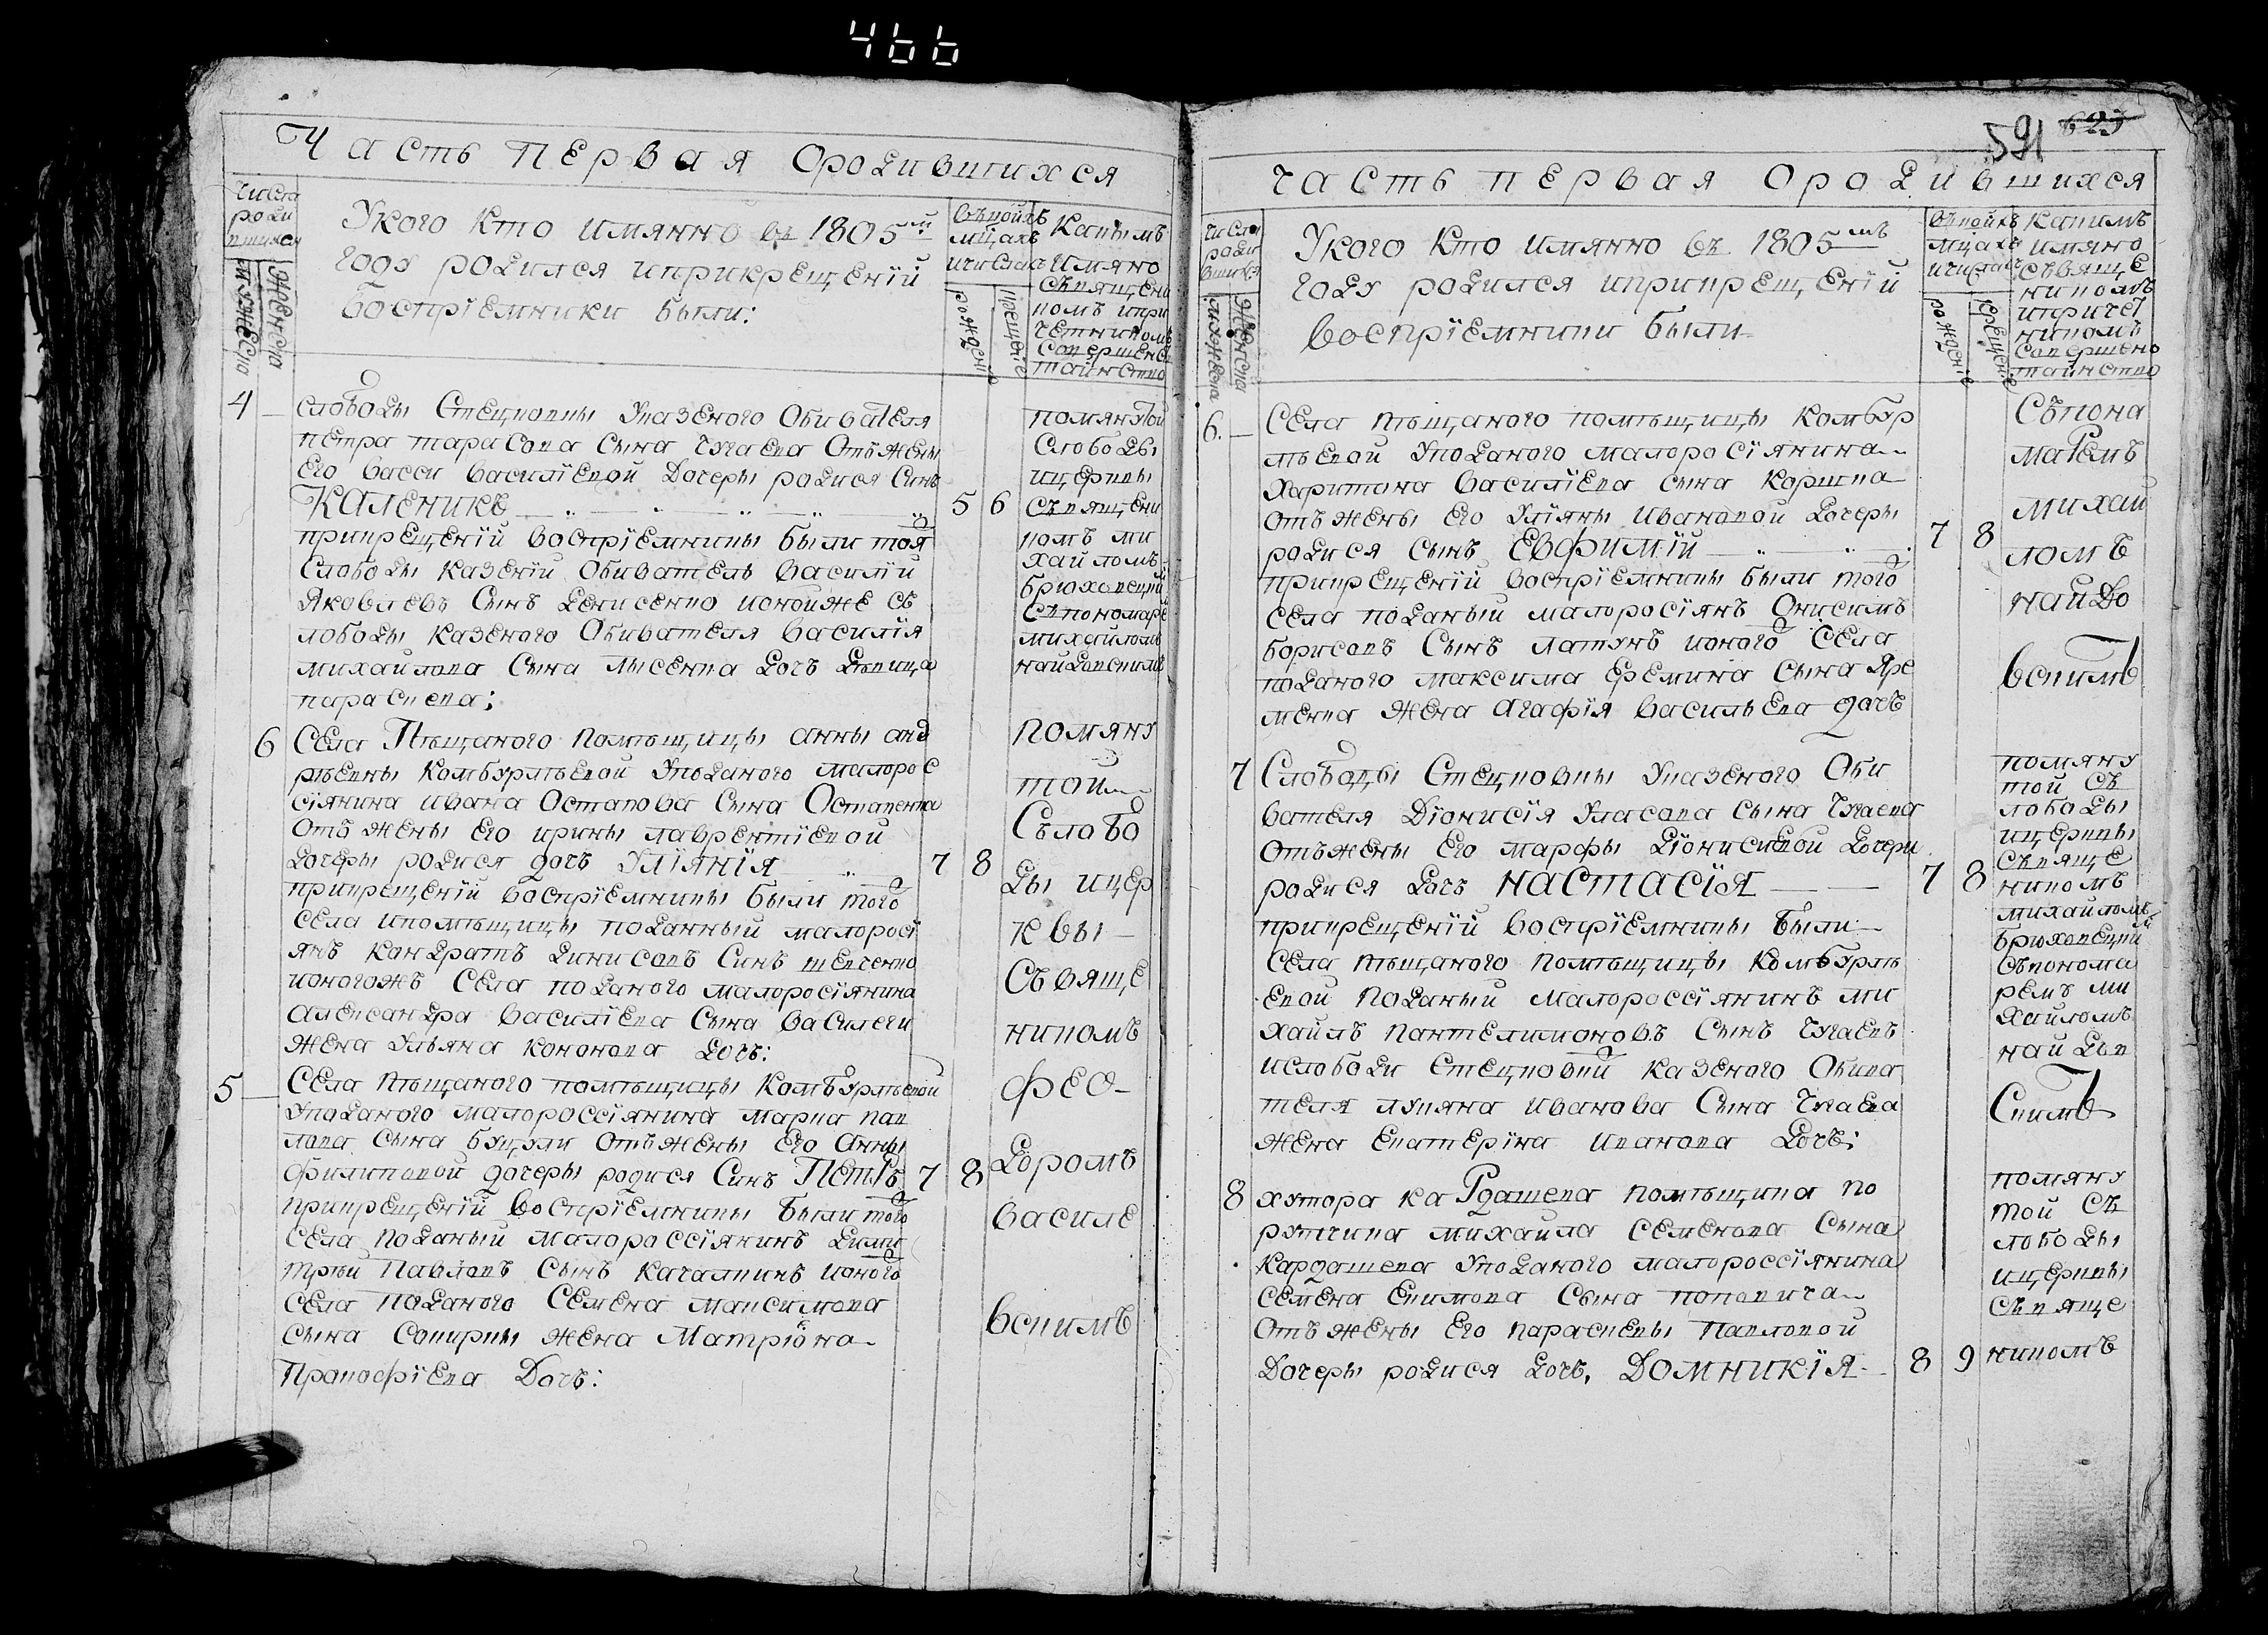 466
Часть первая Ородившихся
числа
роди
вшихся
мужеска
женска
Укого Кто имянно въ 1805м
году родился иприкрещенїи
Воспрїемники были:
въкоихъ
мцахъ
ичислах
рожденїе
крещенїе
Какимъ
имяно
священи
комъ ипри
четникомъ
Совершено
таинство
4 — слободы Стецковки Указеного Обивателя
петра тарасова Сына Чугаева Отъ жены
Его Васси Василїевой Дочеры родися Синъ
КАЛЕНИКЪ 5 6
прикрещенїй Воспрїемники были тоя
Слободы Казенїй Обиватель Василїй
Яковлевъ Сынъ Денисенко ионойже Сл
лободы Казеного Обивателя Василїя
михайлова Сина лисенка дочъ девица
параскева;
помянутой
Слободы
ицеркви
Священи
комъ ми
хаиломъ
брюховецким
Съпономаре
михайломъ
найдовскимъ
6 Села Пѣщаного помѣщицы анны анд
рѣевны Комбурлѣевой Уподаного малорос
сїянина ивана Остапова Сина Остапенка
Отъ жены Его ирины лаврентїевой
дочеры родися дочъ УЛЇЯНЇЯ 7 8
прикрещенїй Воспрїемники были того
Села ипомѣщицы поданный малоросї
янъ Кандратъ динисовъ Синъ шевченко
ионогожъ Села поданого малоросїянина
александра Василїева Сина Василеги
жена Ульяна Кононова дочъ:
помяну
той
Съ лобо
ды ицер
квы
Съвяще
никомъ
фео-
доромъ
василе
вскимъ
5 — Села пѣщаного помѣщицы Комбурлѣевой
Уподаного малороссїянина марка пав
лова Сына буцули отъ жены Его Анны
филиповой дочеры родися Синъ Петръ 7 8
прикрещенїй Воспрїемники были того
Села поданый малороссїянинъ дими
трїй Павловъ Сынъ Качалкинъ ионого
Села поданого Семена максимова
Сына Сокирки жена Матрїона
Прокофїева Дочъ:
591 623
часть первая Ородившихся
числа
роди
вшихся
мужеска
женска
Укого Кто имянно въ 1805мъ
году родился иприкрещенїй
воспрїемники были
въкоихъ
мцахъ
ичислахъ
рожденїе
крещенїе
Какимъ
имяно
съвяще
никомъ
ипричет
никомъ
Совершено
таинство
6. — Села пѣщаного помѣщицы Комбур
лѣевой Уподаного малоросїянина
Харитона Василїева сына Коршка
отъ жены Его Улїяны Ивановой дочеры
родися сынъ ЕВФИМЇЙ 7 8
прикрещенїй воспрїемники были того
села поданый малоросїянъ Онисимъ
борисовъ Сынъ латунъ ионого Села
поданого максима Еремина сына Яре
менка жена агафїя Васильева дочъ
Съпоно
марЕмъ
михаи
ломъ
найдо
вскимъ
7 Слободы Стецковки Указеного Оби
вателя Дїонисїя Уласова Сына Чугаева
Отъ жены Его марфы дїонисиевой дочеры
родися дочъ НАСТАСЇЯ 7 8
прикрещенїй воспрїемники были
Села пѣщаного помѣщицы Комбурлѣ
евой поданый малороссїянинъ ми
хаилъ пантелимоновъ Сынъ Чугаевъ
ислободи Стецковкй Казеного Обива
теля лукяна иванова Сына Чугаева
жена Екатерїна иванова дочъ;
помяну
той Съ
лободы
ицеркви
Съвяще
никомъ
михайломъ
брюховецким
Съпонома
ремъ ми
хаиломъ
найдов
Скимъ
8 хутора Кардашева помѣщика по
рутчика михаила Семенова Сына
Кардашева Уподаного малороссїянина
Семена Екимова Сына поповича
Отъ жены Его параскевы Павловой
Дочеры родися дочъ. ДОМНИКЇЯ 8 9
помяну
той Съ
лободы
ицеркви
Съвяще
никомъ